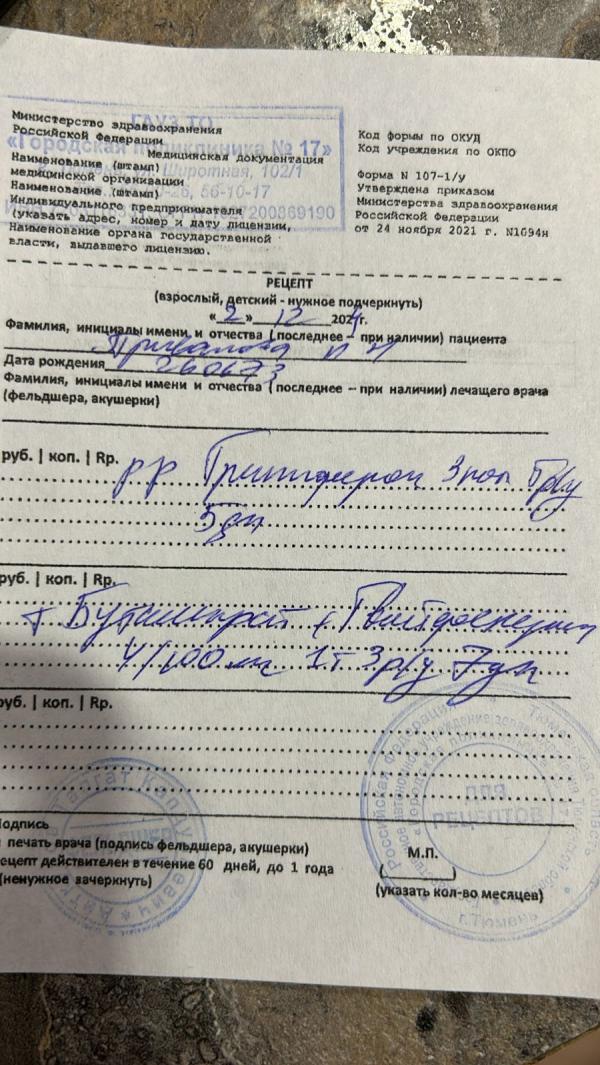 ГАУЗ ТО
«Городская поликлиника № 17»
Широтная, 102/1
56-10-17
7200869190
Министерство здравоохранения
Российской Федерации
Медицинская документация
Наименование (штамп)
медицинской организации
Наименование (штамп)
Индивидуального предпринимателя
(указать адрес, номер и дату лицензии,
Наименование органа государственной
власти, выдавшего лицензию.
Код формы по ОКУД
Код учреждения по ОКПО
Форма N 107-1/у
Утверждена приказом
Министерства здравоохранения
Российской Федерации
от 24 ноября 2021 г. N1094н
РЕЦЕПТ
(взрослый, детский - нужное подчеркнуть)
«2» 12 2024г.
Фамилия, инициалы имени и отчества (последнее – при наличии) пациента
Дата рождения 260673
Фамилия, инициалы имени и отчества (последнее – при наличии) лечащего врача
(фельдшера, акушерки)
руб. | коп. | Rp.
рр Гриппферон 3 5р/у
5дн
руб. | коп. | Rp.
т Бутамират + Гвайфенезин
4/100мг 1т 3р/у 7дн
руб. | коп. | Rp.
Подпись
и печать врача (подпись фельдшера, акушерки)
Рецепт действителен в течение 60 дней, до 1 года
(ненужное зачеркнуть)
М.П.
(указать кол-во месяцев)
ДЛЯ
РЕЦЕПТОВ
Российская Федерация
Тюменская область
г.Тюмень